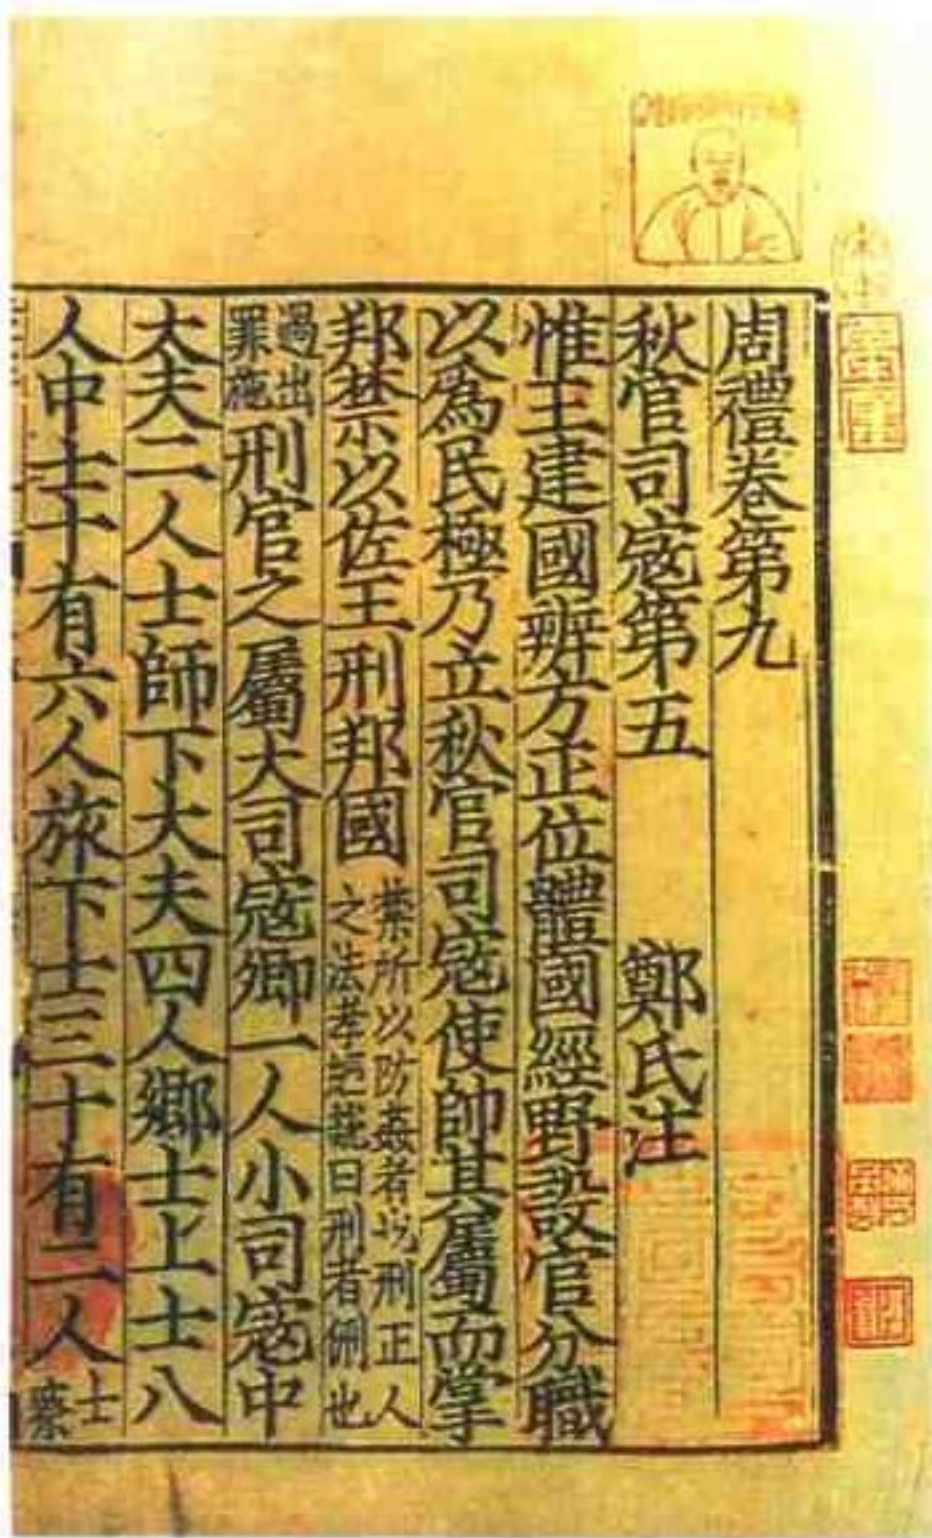 周禮卷第九
秋官司寇第五 鄭氏注
惟王建國辨方正位體國經野設官分職
以爲民極乃立秋官司寇使帥其屬而掌
邦禁以佐王刑邦國 禁所以防姦者也刑正人
之法孝經說曰刑者侀也
過出
罪施 刑官之屬大司寇卿一人小司寇中
大夫二人士師下大夫四人鄉士上士八
人中士十有六人旅下士三十有二人 士
察